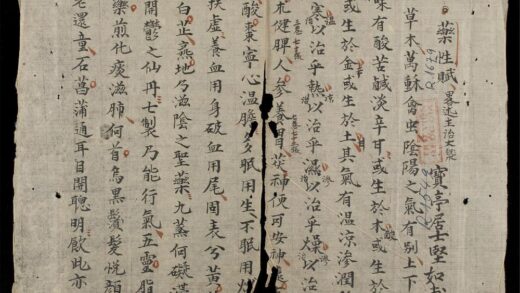 藥性賦 畧述主治大㮣 寶亭居堅如
草木萬蘇禽虫陰陽之氣有別上下
味有酸苦鹹淡辛甘或生於木或生於
或生於金或生於土其氣有温涼滲潤
寒以治乎熱以治乎濕以治乎燥以治
朮健脾人參養胃茯神便可安神
酸棗寧心温膽多眠用生不眠用炒
扶虛養血用身破血用尾固表兮黃
白芷熹地兮滋陰之聖藥九蒸何礙
開鬱之仙丹七製乃能行氣五靈脂
藥煎化痰滋肺何首烏黑鬢髮悅顏
老還童石菖蒲通耳目開聰明歃此亦
R.1679